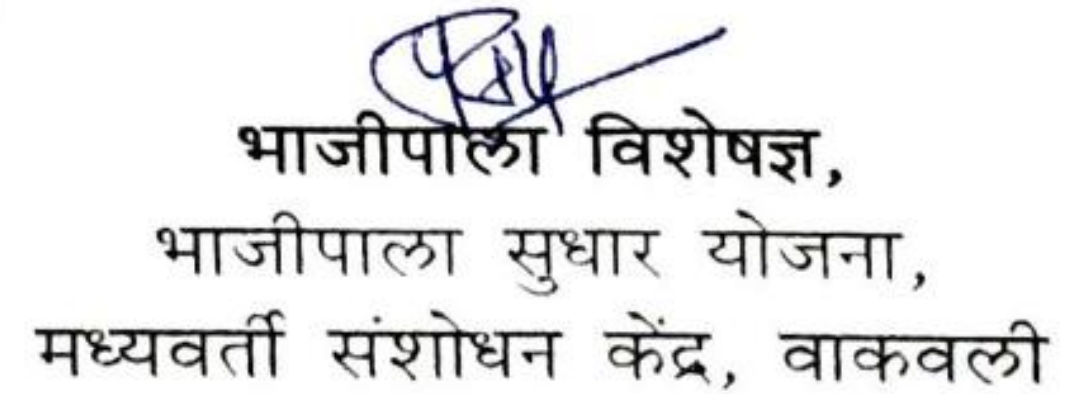 भाजीपाला विशेषज्ञ,
भाजीपाला सुधार योजना,
मध्यवर्ती संशोधन केंद्र, वाकवली